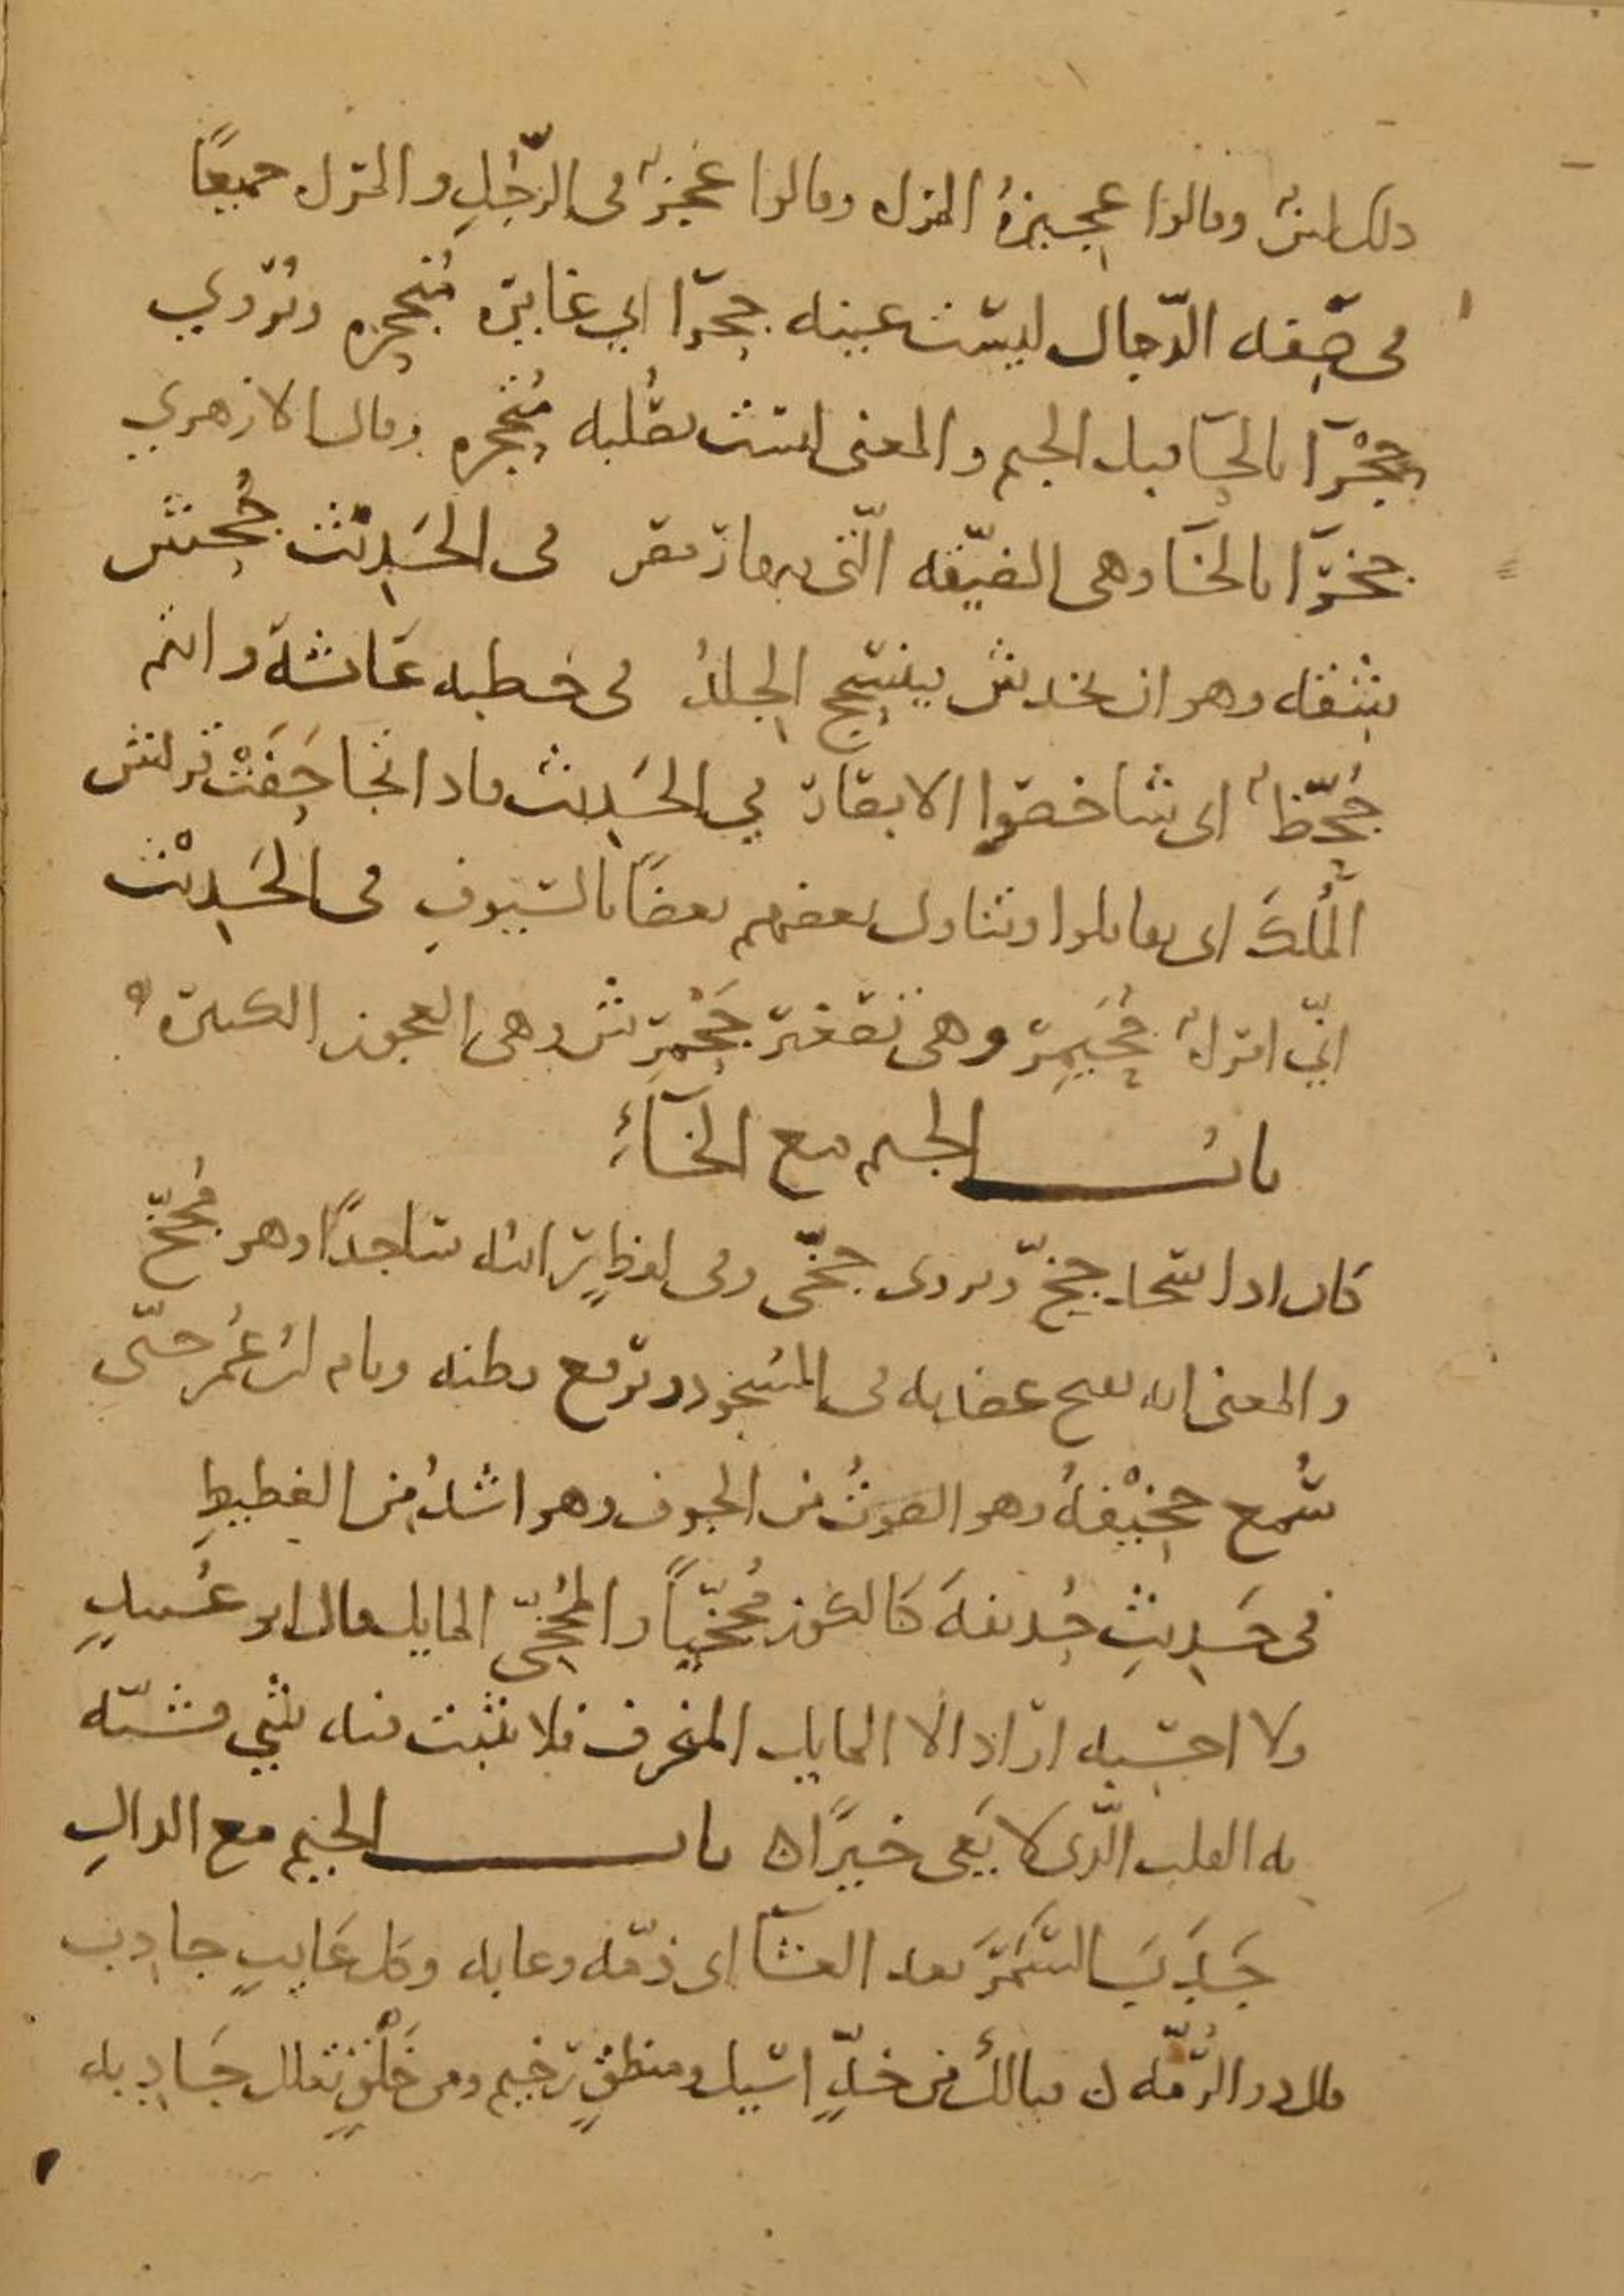 ذلك لين وقالوا عجيزة المنزله وقالوا عجز في الرّجُلِ والمنزل جميعًا
في صِفه الدّجال ليسَت عينه جحرًا اي غايرة مُنجحِره وتُروي
حجْرًا بالحَا قبل الجيم والمعنى ليست بصُلبه مُتحجِّره وقال الازهري
جخرًا بالخَا وهي الضيّقه الّتي بها رمص في الحَدِيْث جُحِش
شِقُّه وهو ان يخدش فينسَحِج الجِلدُ في خطبه عَائشةَ وانتم
جُحَّظٌ اي شاخصوا الابصار في الحَدِيث فاذا تجاحَفَتْ قريش
المُلكَ اي تقاتلوا وتناول بعضهم بعضًا بالسّيوفِ في الحَدِيْث
انّي امراة جُحَيمِر وهي تصغير جَحْمَرِش وهي العجوز الكبيرة ه
باب الجيم مع الخَاءِ
كان اذا سَجَد جخّ ويروى جخّى وفي لفظٍ رايته سَاجدًا وهو مُجخّ
والمعنى انه يفتح عضديه في السُجود ويرفع بطنه ونام ابن عُمر حتّى
سُمع جخِيْفُهُ وهو الصّوتُ من الجوف وهو اشدُّ من الغطيطِ
في حَدِيثِ حُذيفةَ كَالكوز مُجَخِّيًا والمُجَخِّي المايل قال ابو عُبيدٍ
ولا احسِبه ارَاد الا المايل المنحرف فلا يثبت فيه شي فشبّه
به القلب الّذي لا يَعي خيرًا ه باب الجيم مع الدالِ
جَدَبَ السَّمَرَ بعد العشَا اي ذمّه وعابه وكل عَايبٍ جادِب
قال ذو الرُّمَّه ه فيالك من خدٍّ اسِيل ومنطقٍ رخيم ومن خَلْقٍ تعلل جَادِبه